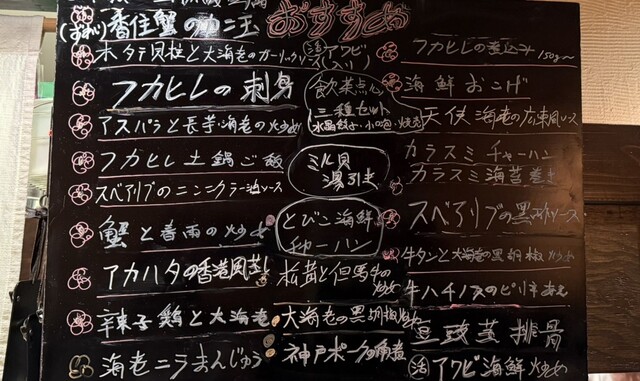 おすすめ
(ずわい)香住蟹のカニ玉
ホタテ貝柱と大海老のガーリックソース
フカヒレの刺身
アスパラと長芋海老の炒め
フカヒレ土鍋ご飯
スペアリブのニンニクラー油ソース
蟹と春雨の炒め
アカハタの香港風蒸し
辣子鶏と大海老
海老ニラまんじゅう
活アワビ
飲茶点心
三種セット
水晶餃子・小籠包・焼売
ミル貝
湯引き
とびこ海鮮
チャーハン
松茸と但馬牛の炒め
大海老の黒胡椒炒め
神戸ポークの角煮
フカヒレの煮込み 150g〜
海鮮おこげ
天使海老の広東風ソース
カラスミチャーハン
カラスミ海苔巻き
スペアリブの黒酢ソース
牛タンと大海老の黒胡椒炒め
牛ハチノスのピリ辛あえ
豆豉蒸排骨
活アワビ海鮮炒め